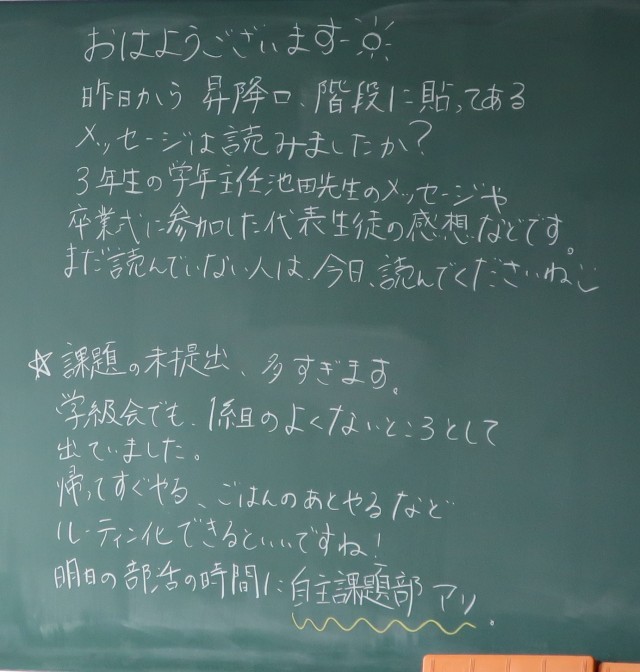 おはようございます☼
昨日から 昇降口、階段に貼ってある
メッセージは読みましたか?
3年生の学年主任池田先生のメッセージや
卒業式に参加した代表生徒の感想などです。
まだ読んでいない人は、今日、読んでくださいね
☆課題の未提出、多すぎます。
学級会でも、1組のよくないところとして
出ていました。
帰ってすぐやる、ごはんのあとやるなど
ルーティン化できるといいですね!
明日の部活の時間に自主課題部アリ。